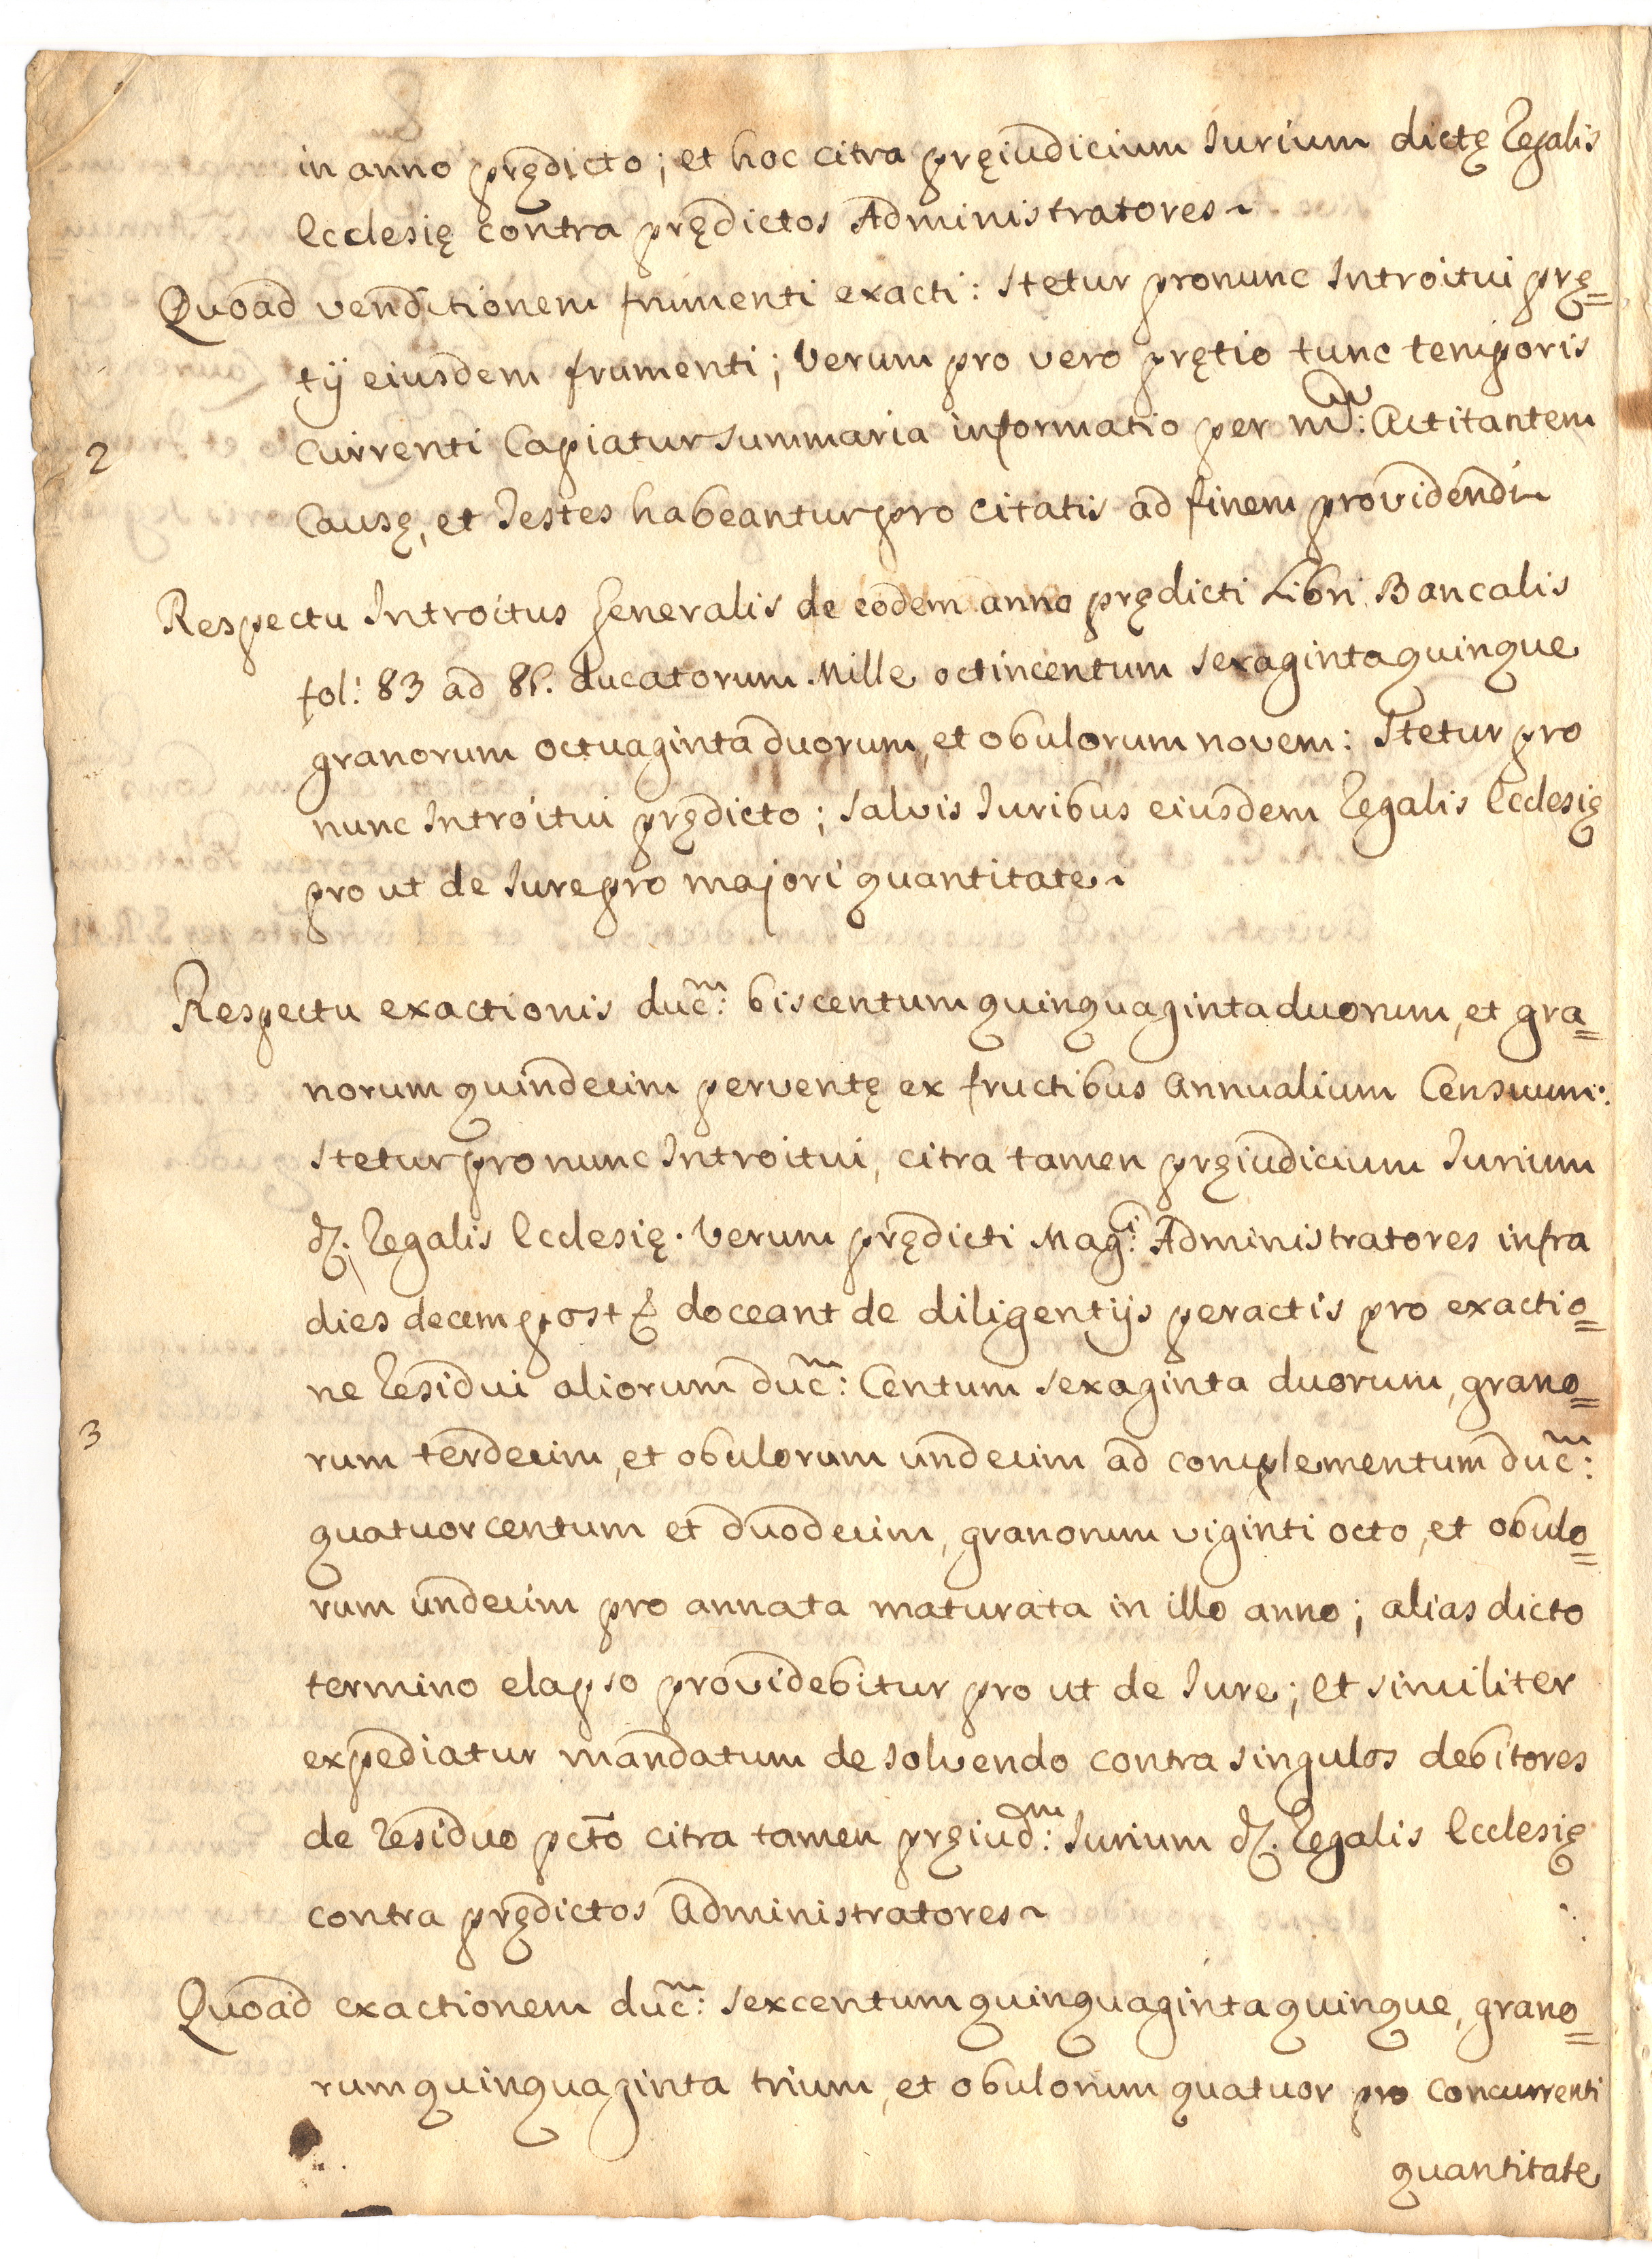 in anno prędicto; et hoc citra pręiudicium Iurium dictę Regalis
Ecclesię contra prędictos Administratores~
Quoad venditionem frumenti exacti: stetur pronunc Introitui prę=
tij eiusdem frumenti; Verum pro vero prętio tunc temporis
2
currenti Capiatur summaria informatio per m.: Actitantem
Causę, et Testes habeantur pro citatis ad finem providendi~
Respectu Introitus generalis de eodem anno prędicti Libri Bancalis
fol: 83 ad ducatorum Mille octincentum sexaginta quinque
granorum octuaginta duorum, et obulorum novem: Stetur pro
nunc Introitui prędicto; salvis Iuribus eiusdem Regalis Ecclesię
pro ut de Iure pro majori quantitate~
Respectu exactionis ducm: biscentum quinquaginta duorum, et gra=
norum quindecim perventę ex fructibus Annualium Censuum:
stetur pro nunc Introitui, citra tamen pręiudicium Iurium
d. Regalis Ecclesię. Verum prędicti Magci: Administratores infra
dies decem post & doceant de diligentijs peractis pro exactio=
ne Residui aliorum ducm: Centum sexaginta duorum, grano=
3
rum terdecim, et obulorum undecim ad complementum ducm:
quatuorcentum et duodecim, granorum viginti octo, et obulo=
rum undecim pro annata maturata in illo anno; alias dicto
termino elapso providebitur pro ut de Iure; et similiter
expediatur mandatum de solvendo contra singulos debitores
de Residuo pcto citra tamen pręiudm: Iurium d. Regalis Ecclesię
contra prędictos Administratores~
Quoad exactionem ducm: sexcentum quinquaginta quinque, grano=
rum quinquaginta trium, et obulorum quatuor pro concurrenti
quantitate